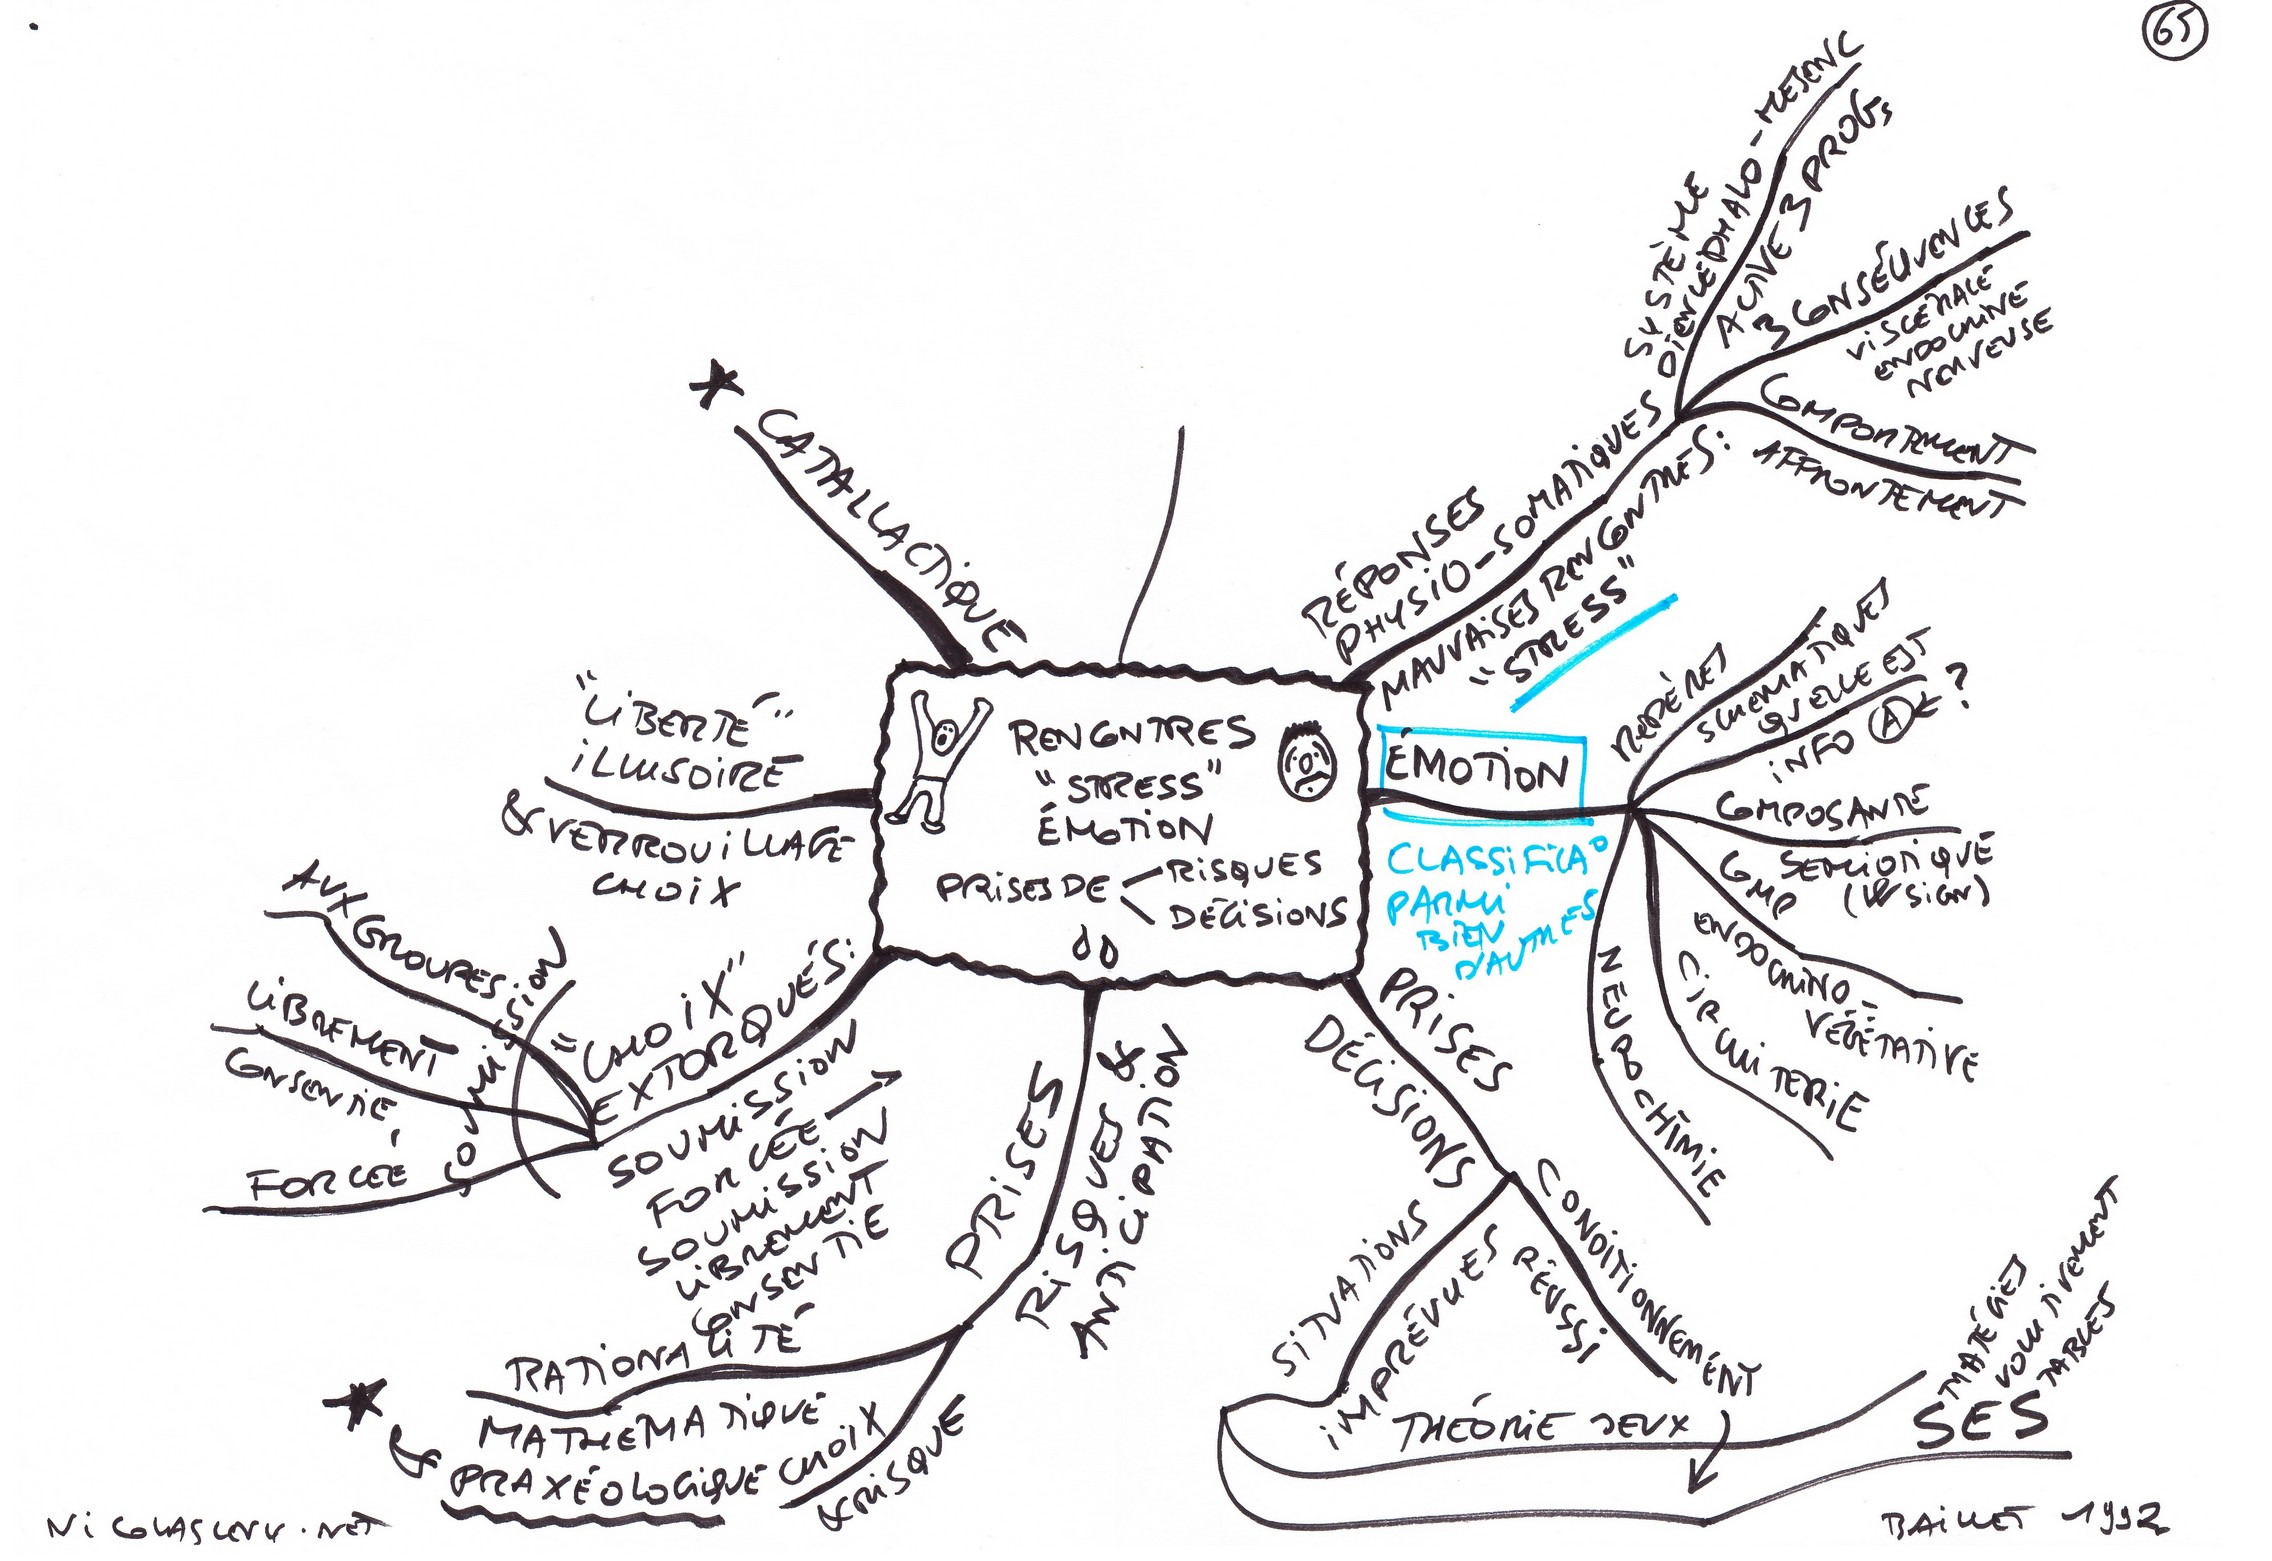 65
RENCONTRES
"STRESS"
ÉMOTION
PRISES DE
RISQUES
DÉCISIONS
RÉPONSES
PHYSIO-SOMATIQUES
MAUVAISES RENCONTRES:
"STRESS"
SYSTÈME
DIENCÉPHALO-MESENC
ACTIVE 3 PROGS
3 CONSÉQUENCES
VISCÉRALE
ENDOCRINE
NERVEUSE
COMPORTEMENT
AFFRONTEMENT
ÉMOTION
CLASSIFICA°
PARMI
BIEN
D'AUTRES
REPÈRES
SCHEMATIQUES
QUELLE EST
INFO A ?
COMPOSANTE
SEMIOTIQUE
COMP
ENDOCRINO-
VÉGÉTATIVE
CIRCUITERIE
NEUROCHIMIE
PRISES
DÉCISIONS
CONDITIONNEMENT
RÉUSSI
SITUATIONS
IMPRÉVUES
THÉORIE JEUX
SES
PRISES
RISQUES &
ANTICIPATION
RATIONALITÉ
MATHEMATIQUE
& PRAXÉOLOGIQUE
CHOIX
& RISQUE
"CHOIX"
EXTORQUÉS:
SOUMISSION
FORCÉE →
SOUMISSION
LIBREMENT
CONSENTIE
SOUMISSION
AUX GROUPES
LIBREMENT
CONSENTIE,
FORCÉE
"LIBERTÉ"
ILLUSOIRE
& VERROUILLAGE
CHOIX
CATALLACTIQUE
BAILLET 1992